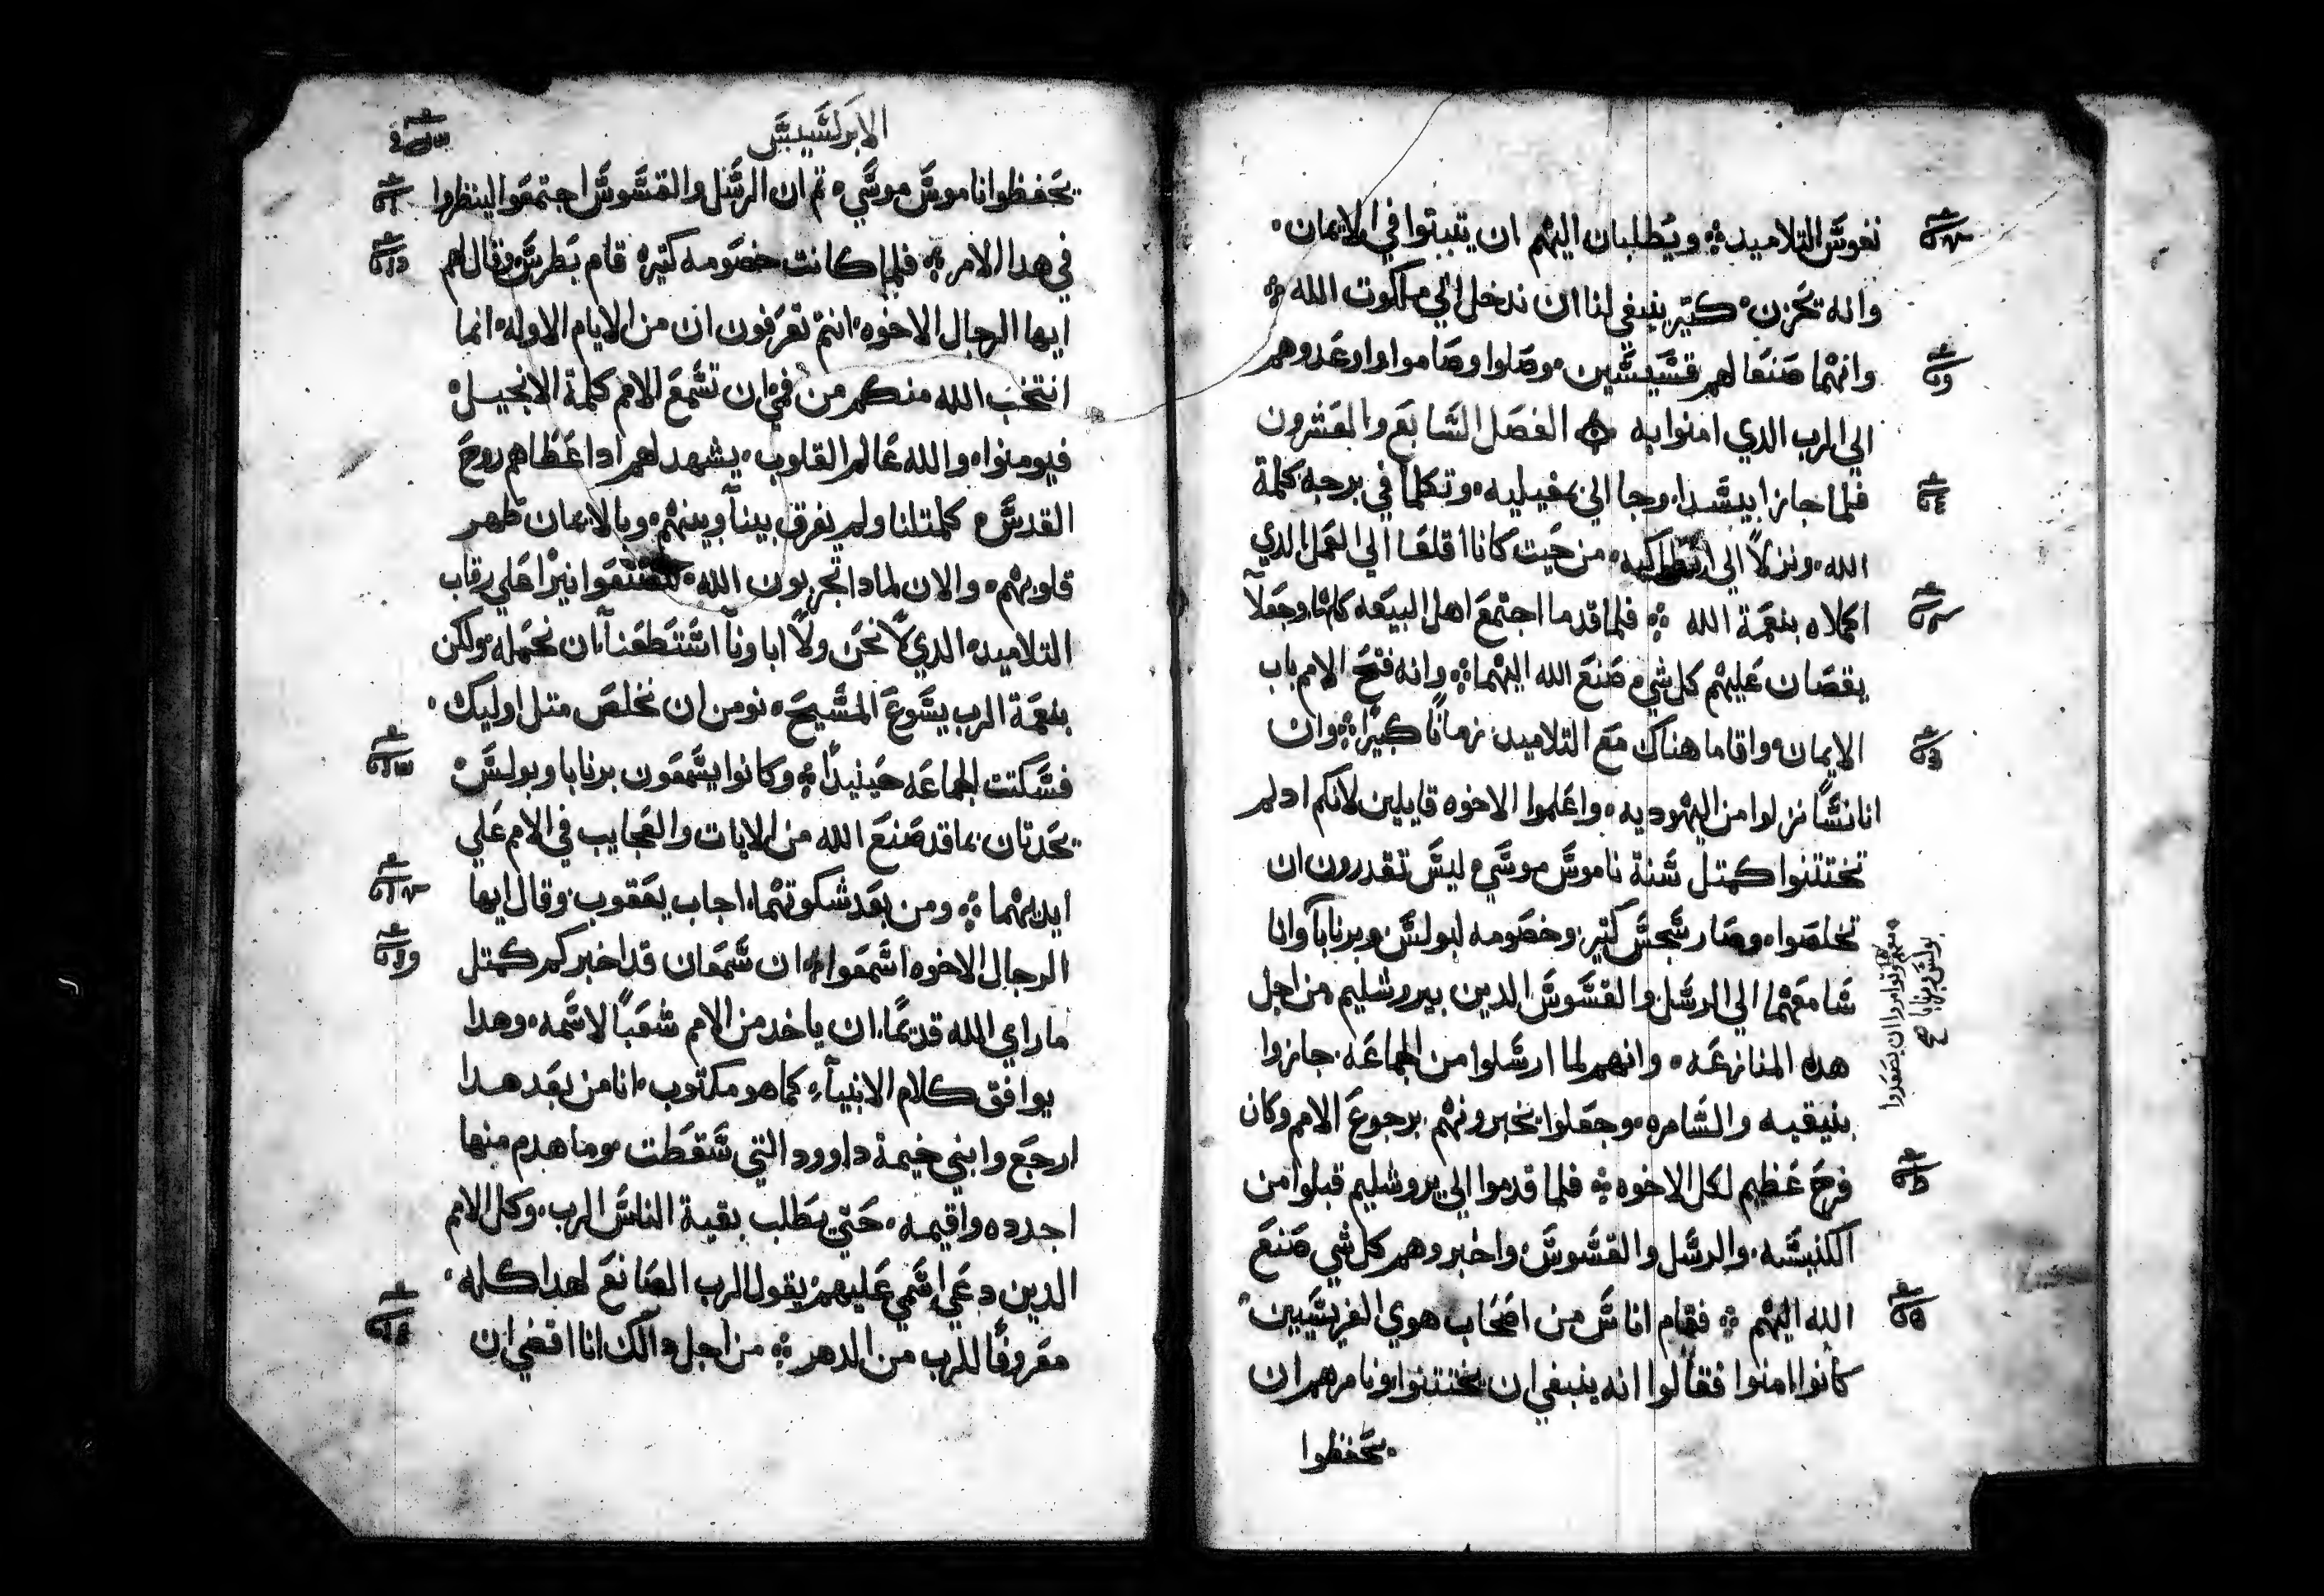 نفوس التلاميد ويطلبان اليهم ان يتبتوا في الايمان
وانه بحزن كتير ينبغي لنا ان ندخل الي ملكوت الله
وانهما صنعا لهم قسيسين وصلوا وصاموا واودعدوهم
الي الرب الدي امنوا به الفصل السابع والعشرون
فلما جازا بيسدا وجا الي بمفيليه وتكلما في برجه كلمة
الله ونزلا الي انطاكيه من حيت كانا اقلعا الي العمل الدي
اكملاه بنعمة الله فلما قدما اجتمع اهل البيعه كلها وجعلا
يقصان عليهم كل شي صنع الله اليهما وانه فتح الامم باب
الايمان واقاما هناك مع التلاميد زمانا كبيرا وان
اناسا نزلوا من اليهوديه واعلموا الاخوه قايلين لانكم ادلم
تختتنوا كمتل سنة ناموس موسي ليس تقدرون ان
تخلصوا وصار سجس كتير وخصومه لبولس وبرنابا وانا
سا معهما الي الرسل والقسوس الدين بيروشليم من اجل
هده المنازعه وانهم لما ارسلوا من الجماعه جازوا
بنيقيه والسامره وجعلوا يخبرونهم برجوع الامم وكان
فرح عظيم لكل الاخوه فلما قدموا الي يروشليم قبلوا من
الكنيسه والرسل والقسوس واخبروهم كل شي صنع
الله اليهم فقام اناس من اصحاب هوي الفريسيين
كانوا امنوا فقالوا انه ينبغي ان يختتنوا ونامرهم ان
يحفظوا
ان يصعدوا
بولس وبرنابا صح
الابركسيس
يحفظوا ناموس موسي تم ان الرسل والقسوس اجتمعوا لينظروا
في هدا الامر فلما كانت خصومه كتيره قام بطرس وقال لهم
ايها الرجال الاخوه انتم تعرفون ان من الايام الاوله انما
انتخب الله منكم من فمي ان تسمع الامم كلمة الانجيل
فيومنوا والله عالم القلوب يشهد لهم ادا عطاهم روح
القدس كمتلنا ولم يفرق بيننا وبينهم وبالايمان طهر
قلوبهم والان لمادا تجربون الله لتضعوا نيرا علي رقاب
التلاميد الدي لا نحن ولا اباونا استطعنا ان نحمله ولكن
بنعمة الرب يسوع المسيح نومن ان نخلص متل اوليك
فسكتت الجماعه حينيدا وكانوا يسمعون برنابا وبولس
يحدتان بما قد صنع الله من الايات والعجايب في الامم علي
ايديهما ومن بعد شكوتهما اجاب يعقوب وقال ايها
الرجال الاخوه اسمعوا ان سمعان قد اخبركم كمتل
ما راي الله قديما ان ياخد من الامم شعبا لاسمه وهدا
يوافق كلام الانبياء كما هو مكتوب انا من بعد هدا
ارجع وابني خيمة داوود التي سقطت وما هدم منها
اجدده واقيمه حتي يطلب بقية الناس الرب وكل الامم
الدين دعي اسمي عليهم يقول الرب الصانع لهدا كله
معروفا للرب من الدهر من اجل دالك انا اقضي ان